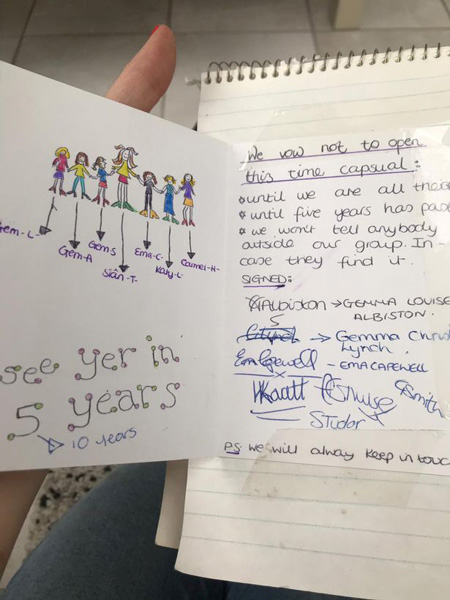 Gem-L
Gem-A
Gem S
Siân-T-
Ema-C-
Katy-L-
see yer in
5 years
10 years
We vow not to open
this time capsual:
until we are all
until five years has
* we won't tell anybody
outside our group. In
case they find it.
SIGNED:
Albiston → GEMMA LOUISE
ALBISTON.
→ Gemma
Lynch.
- EMA CAREWELL
Studor
Smith
PS: we will alway keep in